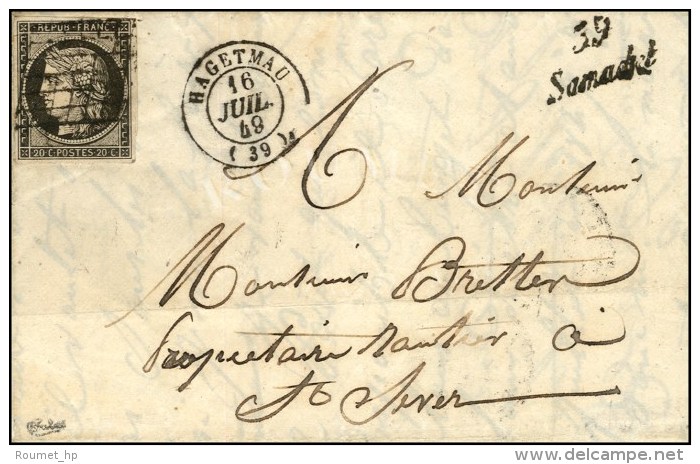 REPUB. FRANC.
20 C. POSTES 20 C.
HAGETMAU
16
JUIL.
49
( 39 )
39
Samadet
6
Monsieur
Monsieur Bretter
Propriétaire rentier à
St Sever
Roumet_hp
www.delcampe.net